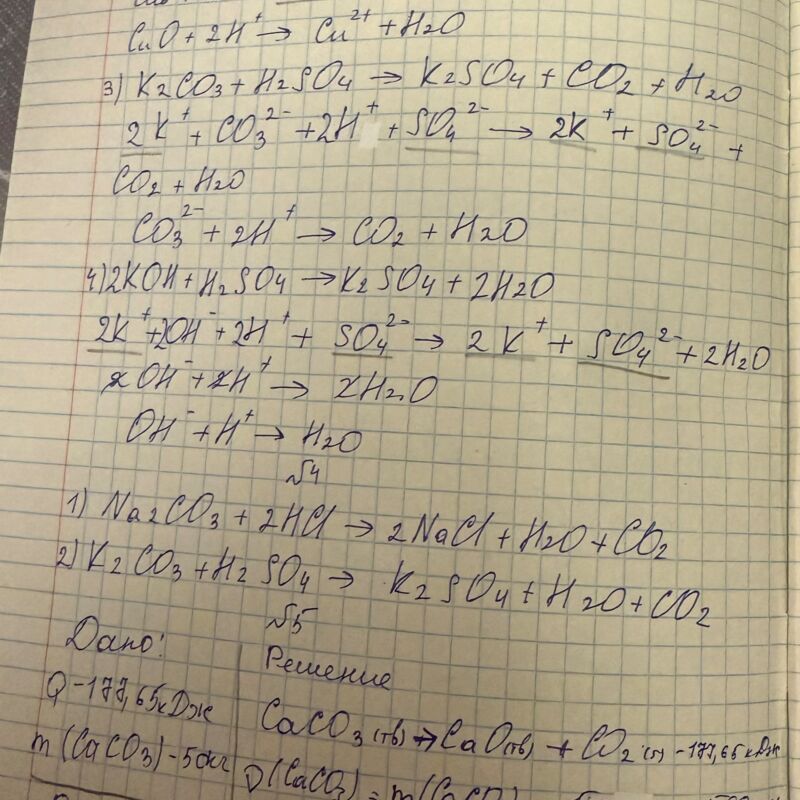 CuO + 2H⁺ → Cu²⁺ + H2O
3) K2CO3 + H2SO4 → K2SO4 + CO2 + H2O
2K⁺ + CO3²⁻ + 2H⁺ + SO4²⁻ → 2K⁺ + SO4²⁻ +
CO2 + H2O
CO3²⁻ + 2H⁺ → CO2 + H2O
4) 2KOH + H2SO4 → K2SO4 + 2H2O
2K⁺ + 2OH⁻ + 2H⁺ + SO4²⁻ → 2K⁺ + SO4²⁻ + 2H2O
2OH⁻ + 2H⁺ → 2H2O
OH⁻ + H⁺ → H2O
№4
1) Na2CO3 + 2HCl → 2NaCl + H2O + CO2
2) K2CO3 + H2SO4 → K2SO4 + H2O + CO2
№5
Дано:
Решение
Q - 177,65 кДж
CaCO3 (тв) → CaO (тв) + CO2 (г) - 177,65 кДж
m (CaCO3) - 50кг
υ (CaCO3) = m (CaCO3)